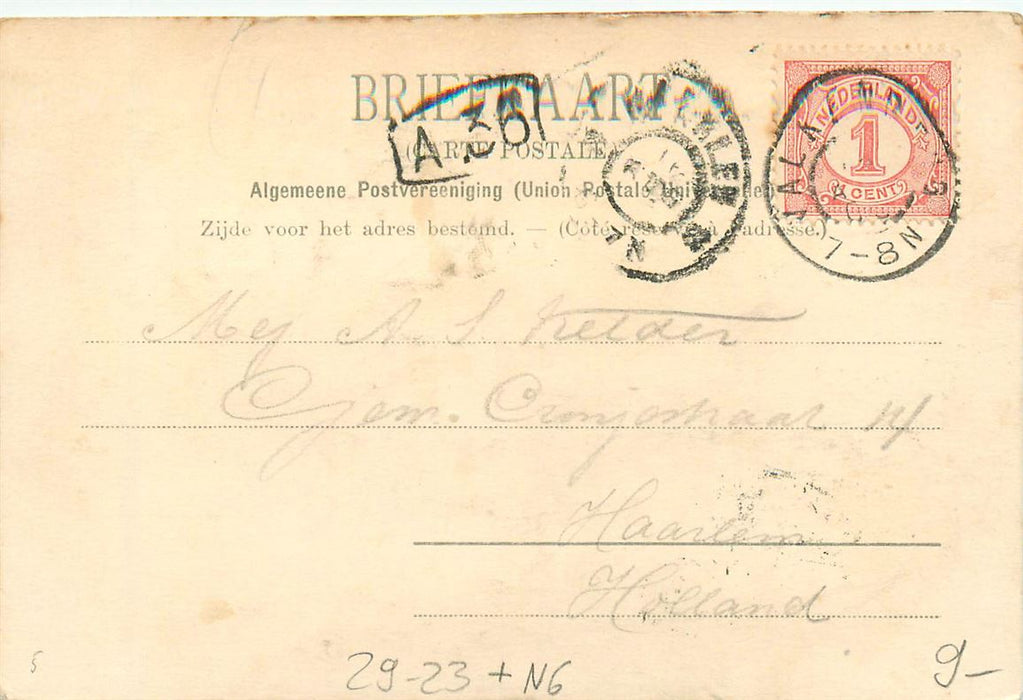 BRIEFKAART
(CARTE POSTALE)
Algemeene Postvereeniging (Union Postale Universelle)
Zijde voor het adres bestemd. — (Côté réservé à l'adresse.)
A 36
NEDERLAND
1
CENT
7-8N
Mej A. S. Kelder
Gem. Cronjestraat 14
Haarlem
Holland
5
29-23 + N6
9-